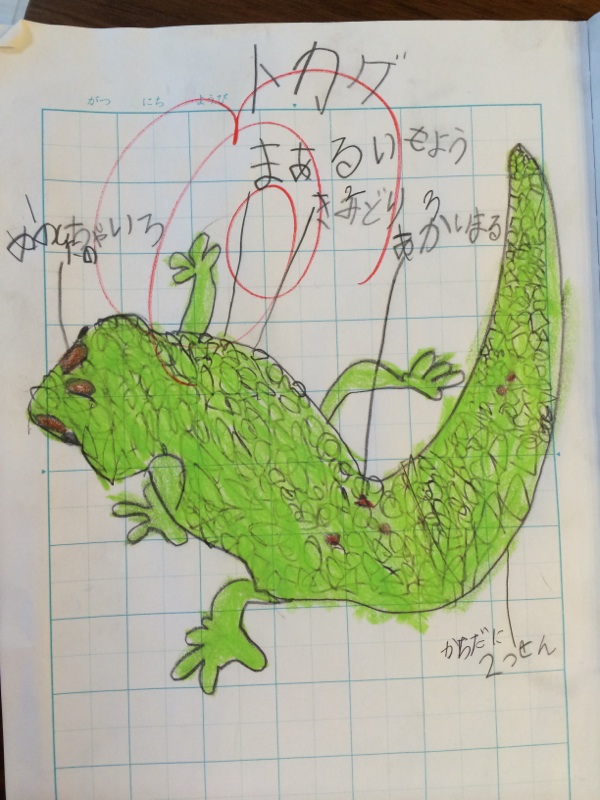 がつ にち ようび
トカゲ
まぁるいもよう
きみどりいろ
あかいまる
ちゃいろ
からだに
2つせん